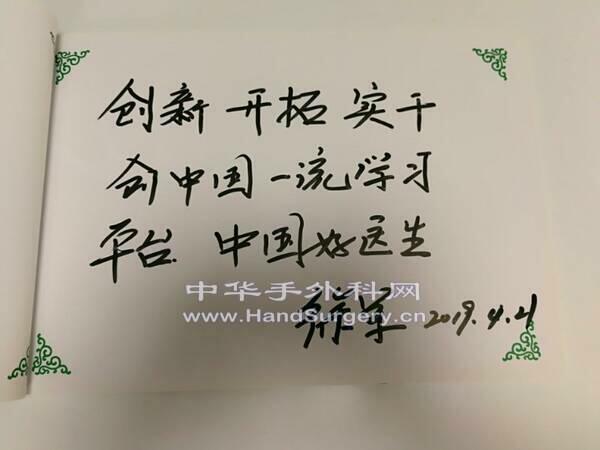 创新 开拓 实干
创中国一流学习
平台 中国好医生
中华手外科网
www.HandSurgery.cn
2019.4.21